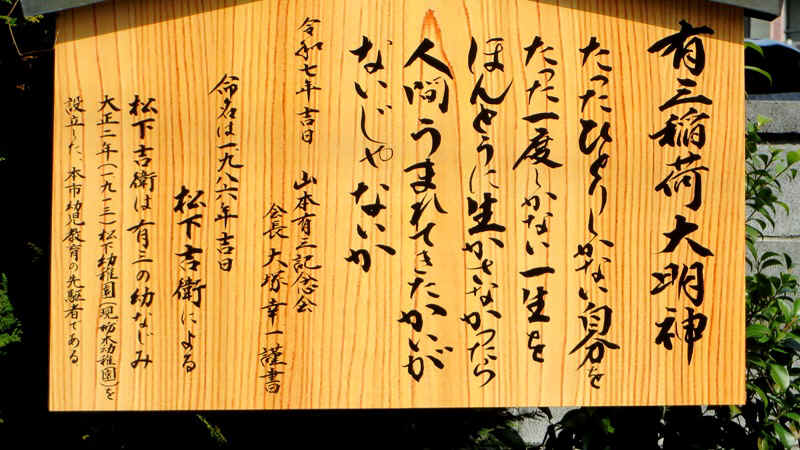 有三稲荷大明神
たったひとりしかない自分を
たった一度しかない一生を
ほんとうに生かさなかったら
人間うまれてきたかいが
ないじゃないか
令和七年 吉日 山本有三記念会
会長 大塚幸一 謹書
命名は一九八六年吉日
松下吉衛による
松下吉衛は有三の幼なじみ
大正二年(一九一三)松下幼稚園(現 栃木幼稚園)を
設立した、本市幼児教育の先駆者である